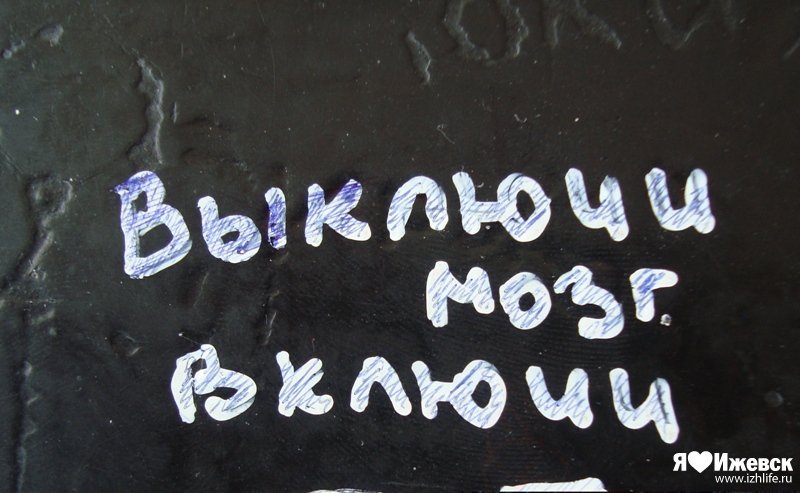 Выключи
мозг.
включи
Я♥Ижевск
www.izhlife.ru